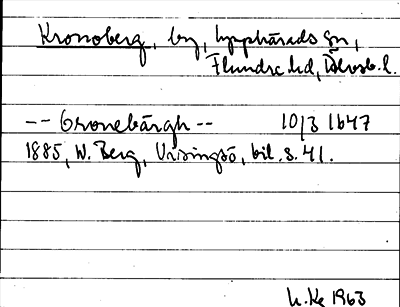 Kronoberg, by, Upphärads sn,
Flundre hd, Älvsb. l.
-- Cronebärgh -- 10/3 1647
1885, W. Berg, Visingsö, bil. s. 41.
1963